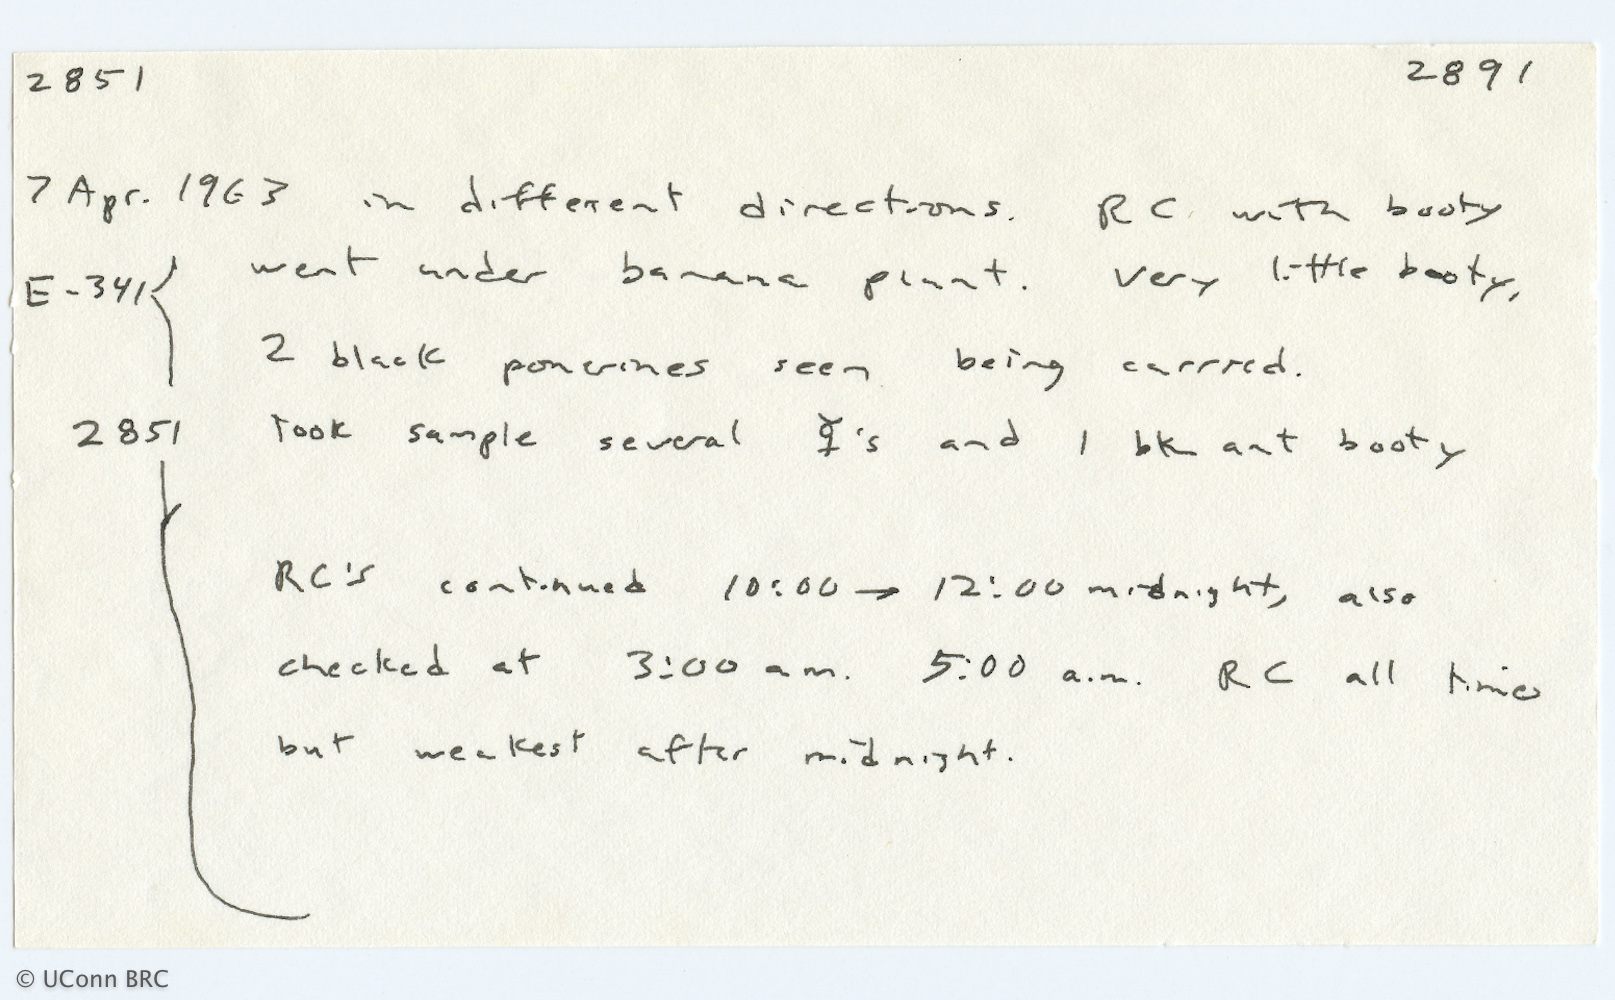 2851 2891
7 Apr. 1963 in different directions. RC with booty
E-341 went under banana plant. Very little booty,
2 black ponerines seen being carried.
2851 Took sample several ☿'s and 1 bk ant booty
RC's continued 10:00 → 12:00 midnight, also
checked at 3:00 am. 5:00 a.m. RC all time
but weakest after midnight.
© UConn BRC